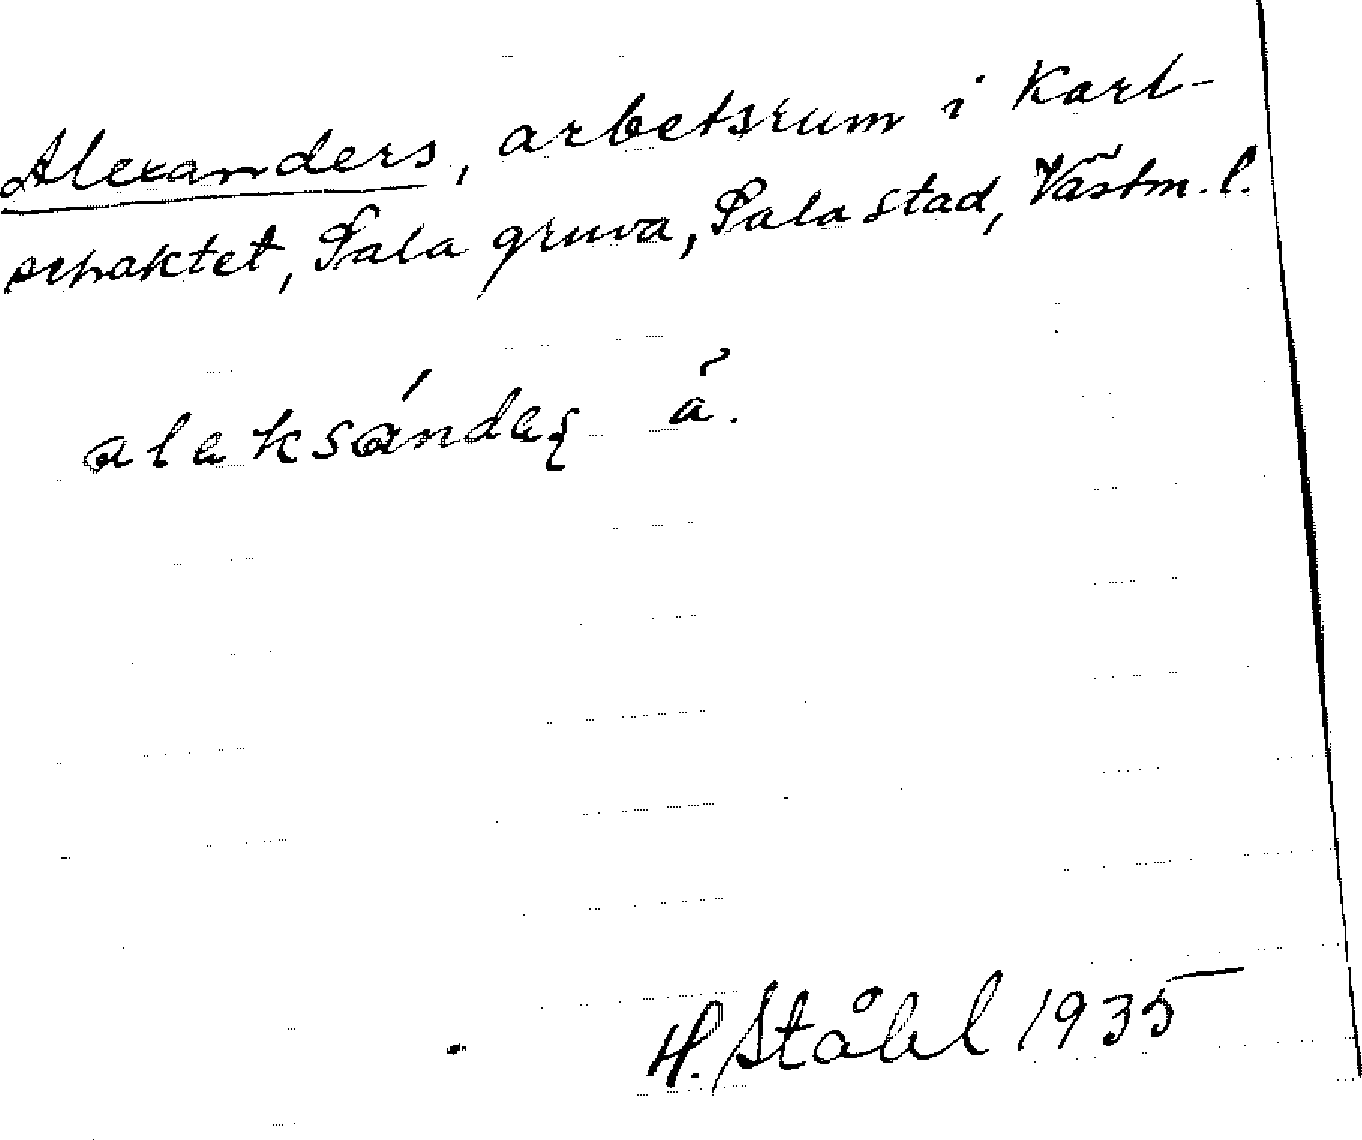 Alexanders, arbetsrum i Karl-
schaktet, Sala gruva, Sala stad, Västm. l.
aleksándeʂ ã.
H. Ståhl 1935